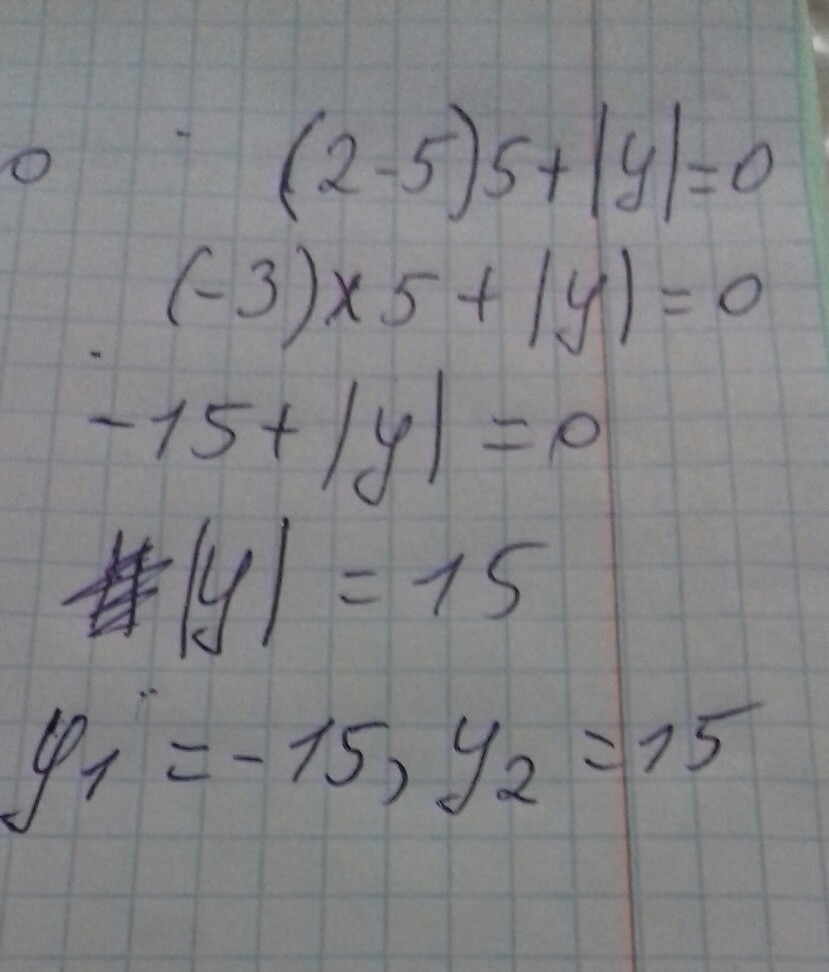 0 (2-5)5+|y|=0
(-3)×5+|y|=0
-15+|y|=0
|y|=15
y1=-15, y2=15